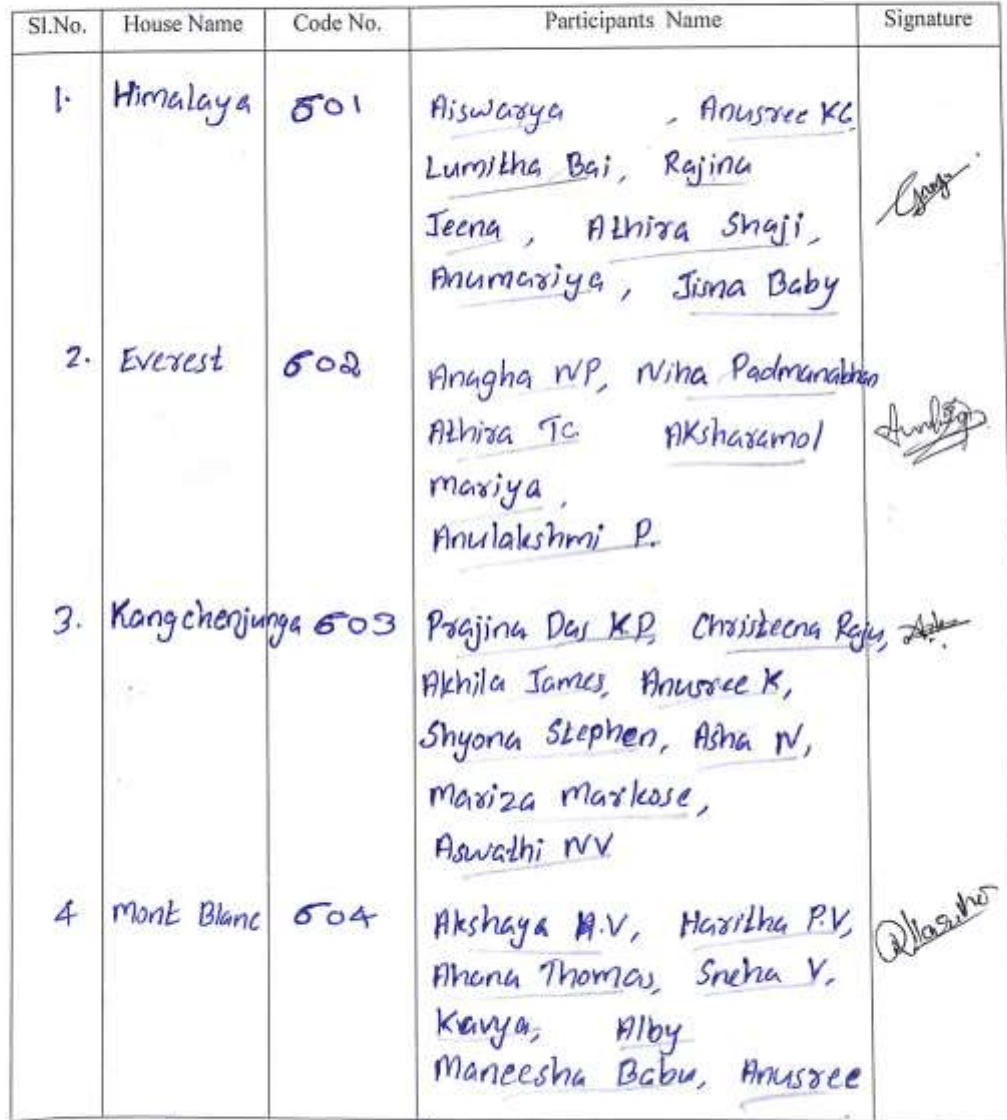 Sl.No. House Name Code No. Participants Name Signature
1. Himalaya 601 Aiswarya , Anusree KC
Lumitha Bai, Rajina
Jeena, Athira Shaji,
Anumariya, Jisna Baby
2. Everest 602 Anagha NP, Niha Padmanabhan
Athira TC Aksharamol
Mariya,
Anulakshmi P.
3. Kangchenjunga 603 Prajina Das K.P, Christeena Raju,
Akhila James, Anusree K,
Shyona Stephen, Asha N,
Mariza Markose,
Aswathi NV
4 Mont Blanc 604 Akshaya A.V, Haritha P.V,
Ahana Thomas, Sneha V,
Kavya, Alby
Maneesha Babu, Anusree